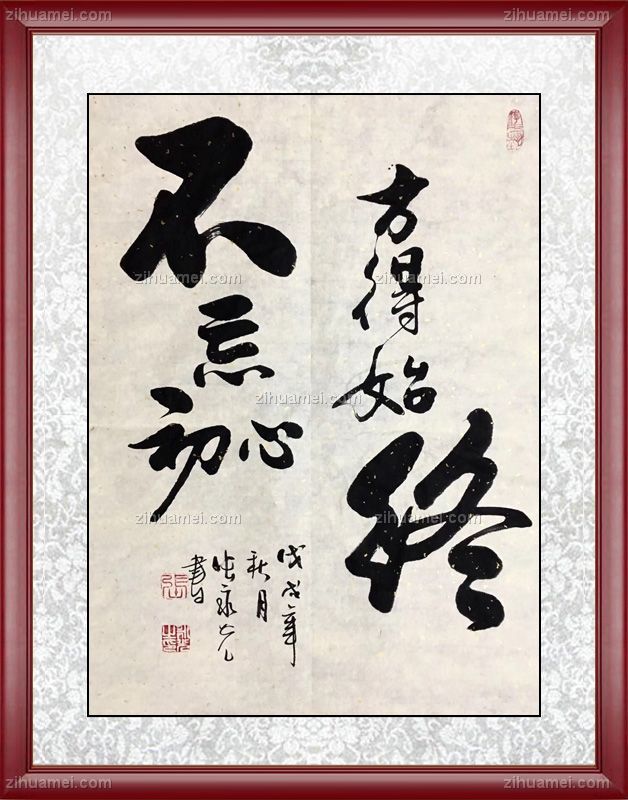 zihuamei.com
zihuamei.com
不忘
初心
方得始终
戊戌年
秋月
張
書
zihuamei.com
zihuamei.com
zihuamei.com
zihuamei.com
zihuamei.com
zihuamei.com
zihuamei.com